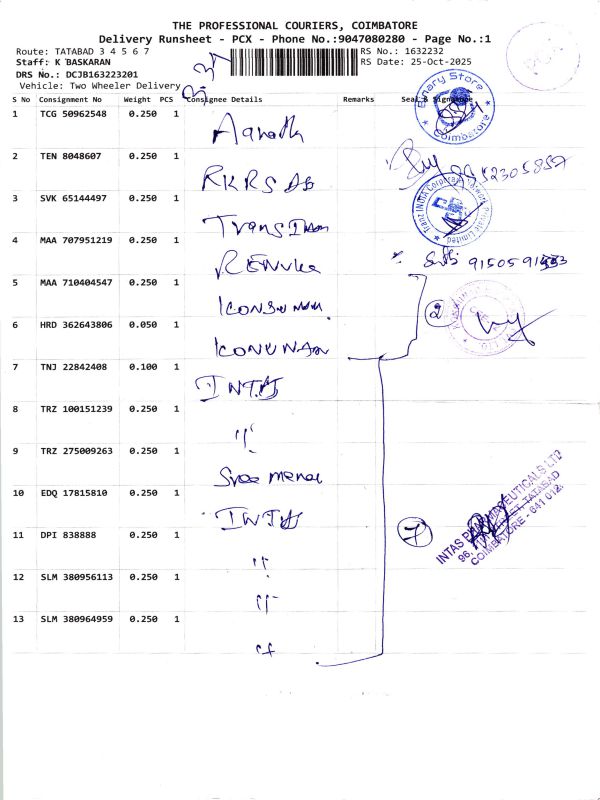 THE PROFESSIONAL COURIERS, COIMBATORE
Delivery Runsheet - PCX - Phone No.:9047080280 - Page No.:1
Route: TATABAD 3 4 5 6 7
RS No.: 1632232
Staff: K BASKARAN
RS Date: 25-Oct-2025
DRS No.: DCJB163223201
Vehicle: Two Wheeler Delivery
S No Consignment No Weight PCS Consignee Details Remarks Seal & Signature
Binary Store
Coimbatore
1 TCG 50962548 0.250 1
2 TEN 8048607 0.250 1 RKRS
9952305857
3 SVK 65144497 0.250 1 Trans Inam
4 MAA 707951219 0.250 1 RENUKA
9150591
5 MAA 710404547 0.250 1
2
6 HRD 362643806 0.050 1
7 TNJ 22842408 0.100 1 INTAS
8 TRZ 100151239 0.250 1 "
9 TRZ 275009263 0.250 1 Sree
10 EDQ 17815810 0.250 1 INTAS
11 DPI 838888 0.250 1 "
7
INTAS PHARMACEUTICALS LTD
96, STREET, TATABAD
COIMBATORE - 641 012.
12 SLM 380956113 0.250 1 "
13 SLM 380964959 0.250 1 "